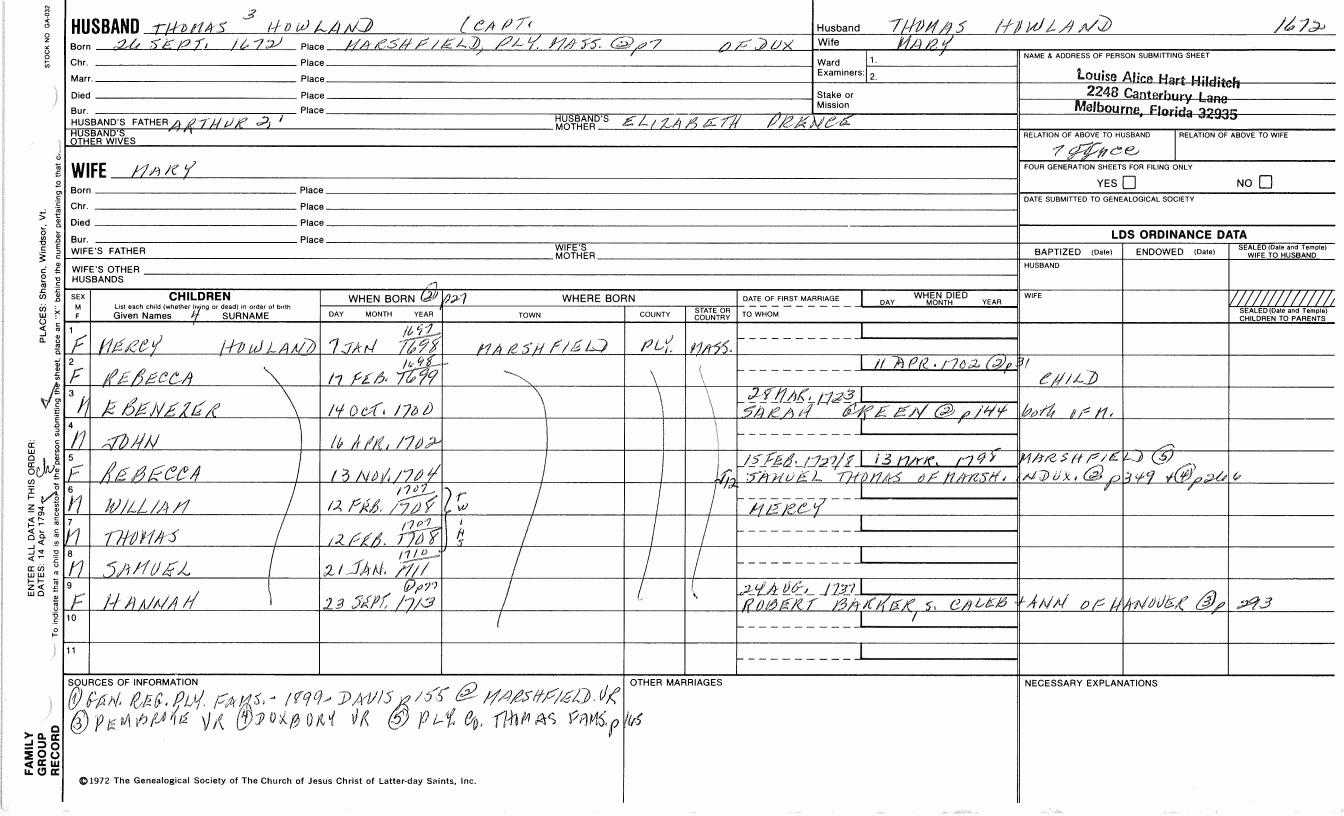 STOCK NO GA-032
HUSBAND THOMAS 3 HOWLAND (CAPT.
Born 26 SEPT. 1672 Place MARSHFIELD, PLY. MASS. ② p7 OF DUX
Chr. Place
Marr. Place
Died Place
Bur. Place
HUSBAND'S FATHER ARTHUR 2, 1 HUSBAND'S MOTHER ELIZABETH PRENCE
HUSBAND'S OTHER WIVES
Husband THOMAS HOWLAND 1672
Wife MARY
Ward Examiners: 1.
2.
Stake or Mission
NAME & ADDRESS OF PERSON SUBMITTING SHEET
Louise Alice Hart Hilditch
2248 Canterbury Lane
Melbourne, Florida 32935
RELATION OF ABOVE TO HUSBAND RELATION OF ABOVE TO WIFE
FOUR GENERATION SHEETS FOR FILING ONLY
YES NO
DATE SUBMITTED TO GENEALOGICAL SOCIETY
WIFE MARY
Born Place
Chr. Place
Died Place
Bur. Place
WIFE'S FATHER WIFE'S MOTHER
WIFE'S OTHER HUSBANDS
LDS ORDINANCE DATA
BAPTIZED (Date) ENDOWED (Date) SEALED (Date and Temple) WIFE TO HUSBAND
HUSBAND
WIFE
SEALED (Date and Temple) CHILDREN TO PARENTS
SEX M F
CHILDREN
List each child (whether living or dead) in order of birth
Given Names 4 SURNAME
WHEN BORN ② p27
DAY MONTH YEAR
WHERE BORN
TOWN COUNTY STATE OR COUNTRY
DATE OF FIRST MARRIAGE
TO WHOM
WHEN DIED
DAY MONTH YEAR
1 F MERCY HOWLAND 7 JAN 1697/1698 MARSHFIELD PLY. MASS.
2 F REBECCA 17 FEB. 1698/1699 11 APR. 1702 ② p31 CHILD
3 M EBENEZER 14 OCT. 1700 28 MAR. 1723
SARAH GREEN ② p144 both OF M.
4 M JOHN 16 APR. 1702
5 F REBECCA 13 NOV. 1704 15 FEB. 1727/8 13 MAR. 1798 MARSHFIELD ⑤
SAMUEL THOMAS OF MARSH. INDUX. ② p349 + ④ p266
6 M WILLIAM 12 FEB. 1707/1708 TWINS MERCY
7 M THOMAS 12 FEB. 1707/1708
8 M SAMUEL 21 JAN. 1710/1711
9 F HANNAH 23 SEPT. 1713 ② p27 24 AUG. 1737
ROBERT BARKER, S. CALEB + ANN OF HANOVER ③ p 293
10
11
SOURCES OF INFORMATION
① GEN. REG. PLY. FAMS. - 1899 - DAVIS p155 ② MARSHFIELD VR
③ PEMBROKE VR ④ DUXBURY VR ⑤ PLY. CO. THOMAS FAMS. p165
OTHER MARRIAGES
NECESSARY EXPLANATIONS
©1972 The Genealogical Society of The Church of Jesus Christ of Latter-day Saints, Inc.
FAMILY GROUP RECORD
ENTER ALL DATA IN THIS ORDER:
DATES: 14 Apr 1794
PLACES: Sharon, Windsor, Vt.
To indicate that a child is an ancestor of the person submitting the sheet, place an "X" behind the number pertaining to that